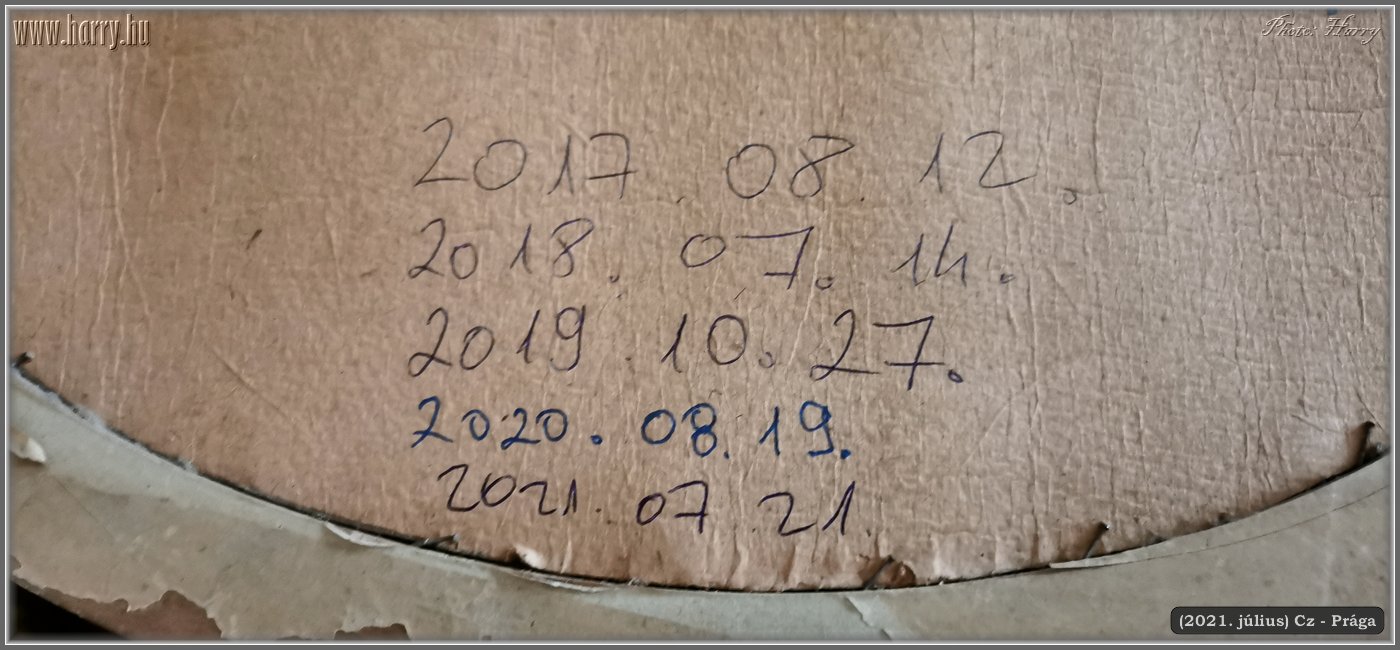 www.harry.hu
Photo: Harry
2017. 08. 12.
2018. 07. 14.
2019. 10. 27.
2020. 08. 19.
2021. 07. 21.
(2021. július) Cz - Prága